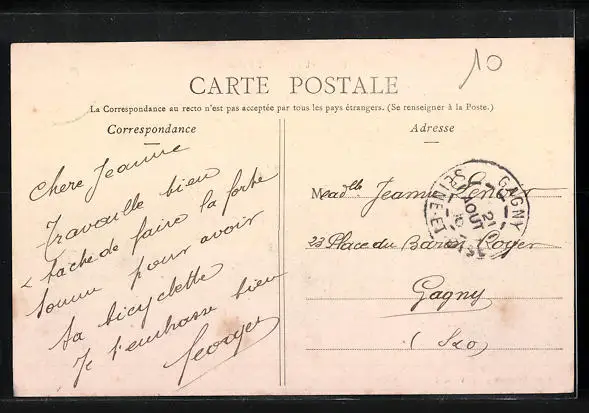 10
CARTE POSTALE
La Correspondance au recto n'est pas acceptée par tous les pays étrangers. (Se renseigner à la Poste.)
Correspondance
Chere Jeanne
Travaille bien
& tache de faire la forte
somme pour avoir
ta bicyclette
Je t'embrasse bien
Georges
Adresse
Meadelle Jeanne
23 Place du Baron Royer
Gagny
(S&O)
GAGNY
SEINE-ET-OISE
21
AOUT